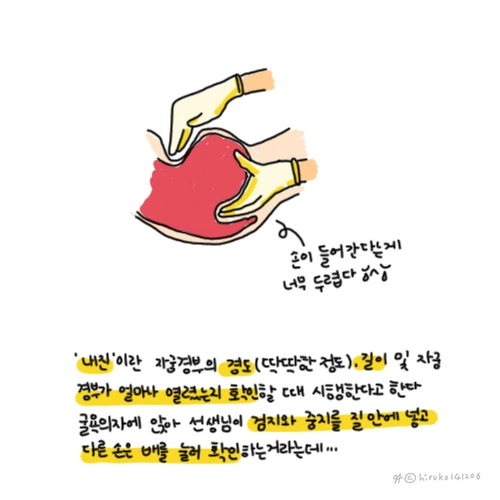 손이 들어간다는게
너무 두렵다 ㅠ^ㅠ
'내진'이란 자궁경부의 경도(딱딱한 정도), 길이 및 자궁
경부가 얼마나 열렸는지 확인할 때 시행한다고 한다
굴욕의자에 앉아 선생님이 검지와 중지를 질 안에 넣고
다른 손은 배를 눌러 확인하는거라는데...
ⓒhiroko141206